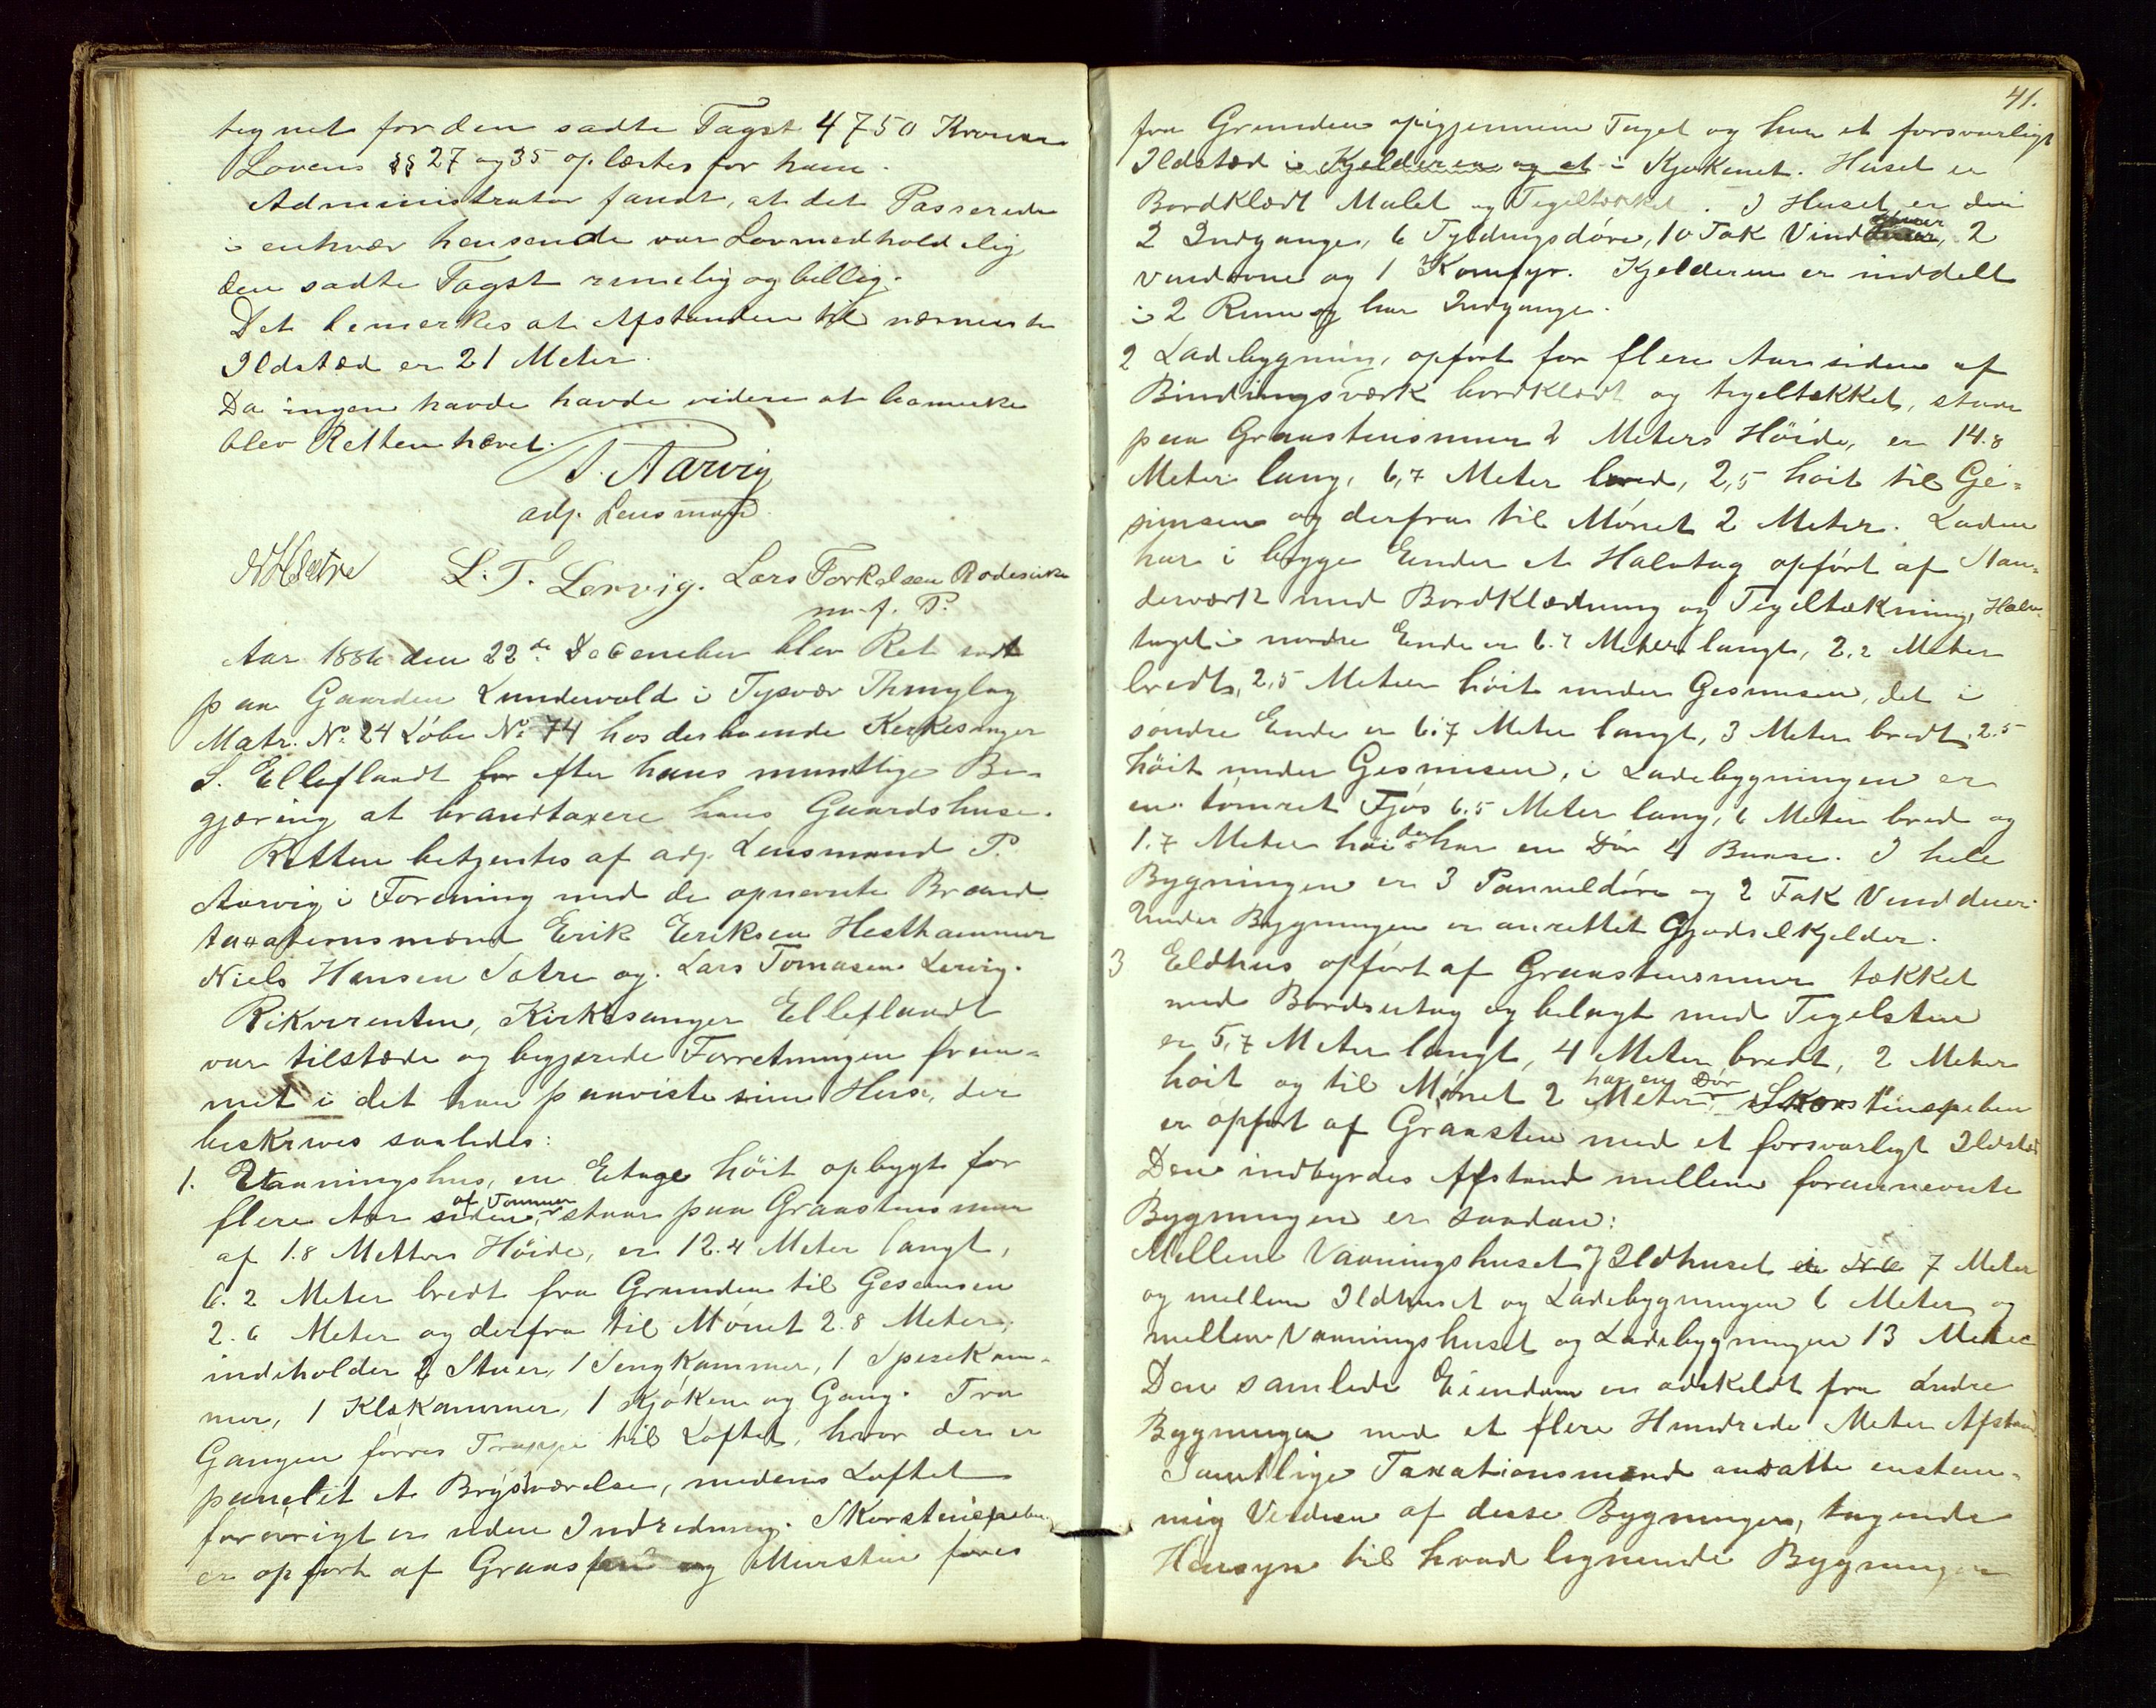 tegnet for den sadte Taxst 4750 Kroner
Lovens §§ 27 og 35 oplæstes for ham.
Administrator fandt, at det Passerede
i enhver henseende var Lovmedholdelig
den sadte Taxst rimelig og billig.
Det bemerkes at Afstanden til nærmeste
Ildsted er 21 Meter.
Da ingen havde havde videre at bemerke
blev Retten hævet.
P. Aarvig
adj. Lensmand
NHSætre L. T. Lervig. Lars Torkelsen
m. f. P.
Aar 1886 den 22de December blev Ret sadt
paa Gaarden Lundevold i Tysvær Thinglag
Matr. No. 24 Løbe No. 74 hos derboende Kirkesanger
S. Elleflaadt for efter hans mundtlige Be-
gjæring at brandtaxere hans Gaardshuse.
Retten betjentes af adj. Lensmand P.
Aarvig i Forening med de opnævnte Brand
taxationsmænd Erik Eriksen Hesthammer
Niels Hansen Sætre og Lars Tomasen Lervig.
Rikvirenten, Kirkesanger Elleflaadt
var tilstæde og begjærede Forretningen frem-
met i det han paaviste sine Huse, der
beskrives saaledes:
1. Vaaningshus, en Etage höit opbygt for
flere Aar siden, af Tømmer staar paa Graastensmur
af 1.8 Metters Höide, er 12.4 Meter langt,
6.2 Meter bredt fra Grunden til Gesemsen
2.6 Meter og derfra til Mönet 2.8 Meter,
indeholder 2 Stuer, 1 Sengkammer, 1 Spisekam-
mer, 1 Klækammer, 1 Kjöken og Gang. Fra
Gangen förres Trappe til Loftet, hvor der er
panelet et Brystværelse, medens Loftet
forövrigt er uden Indredning. Skorstenspiben
er opført af Graasten og Mursten föres
41.
fra Grunden opigjennem Taget og har et forsvarligt
Ildsted i Kjelderen og et i Kjøkenet. Huset er
Bordklædt Malet og Tegeltækket. I Huset er der
2 Indgange, 6 Fyldingsdöre, 10 Fak Vindduer, 2
vindovne og 1 Komfyr. Kjelderen er inddelt
i 2 Rum og har Indgange.
2 Ladebygning, opført for flere Aar siden af
Bindingsværk bordklædt og tegeltækket, staar
paa Graastensmur 2 Meters Höide, er 14.8
Meter lang, 6,7 Meter bred, 2,5 höit til Ge-
simsen og derfra til Mönet 2 Meter. Laden
har i begge Ender et Halvtag opfört af Stan-
derværk med Bordklædning og Tegeltækning, Halv-
taget i nordre Ende er 6.7 Meter langt, 2.2 Meter
bredt, 2,5 Meter höit under Gesimsen, det i
søndre Ende er 6.7 Meter langt, 3 Meter bredt, 2.5
höit under Gesimsen, i Ladebygningen er
en tömret Fjös 6.5 Meter lang, 6 Meter bred og
1.7 Meter höi der har en Dör 4 Baase. I hele
Bygningen er 3 Panneldöre og 2 Fak Vindduer.
Under Bygningen er anrettet Gjødselkjelder.
3 Eldhus opfört af Graastensmur tækket
med Bordsutag og belagt med Tegelsten
er 5,7 Meter langt, 4 Meter bredt, 2 Meter
höit og til Mönet 2 Meter, har en Dör Skorstenspiben
er opført af Graasten med et forsvarligt Ildsted
Den indbyrdes Afstand mellem forannevnte
Bygninger er saadan:
Mellem Vaaningshuset og Ildhuset 7 Meter
og mellem Ildhuset og Ladebygningen 6 Meter og
mellem Vaaningshuset og Ladebygningen 13 Meter
Den samlede Eiendom er adskeldt fra andre
Bygninger med et flere Hundrede Meter Afstand
Samtlige Taxationsmænd ansatte enstem-
mig Verdien af disse Bygninger, tagende
Hensyn til hvad lignende Bygninger